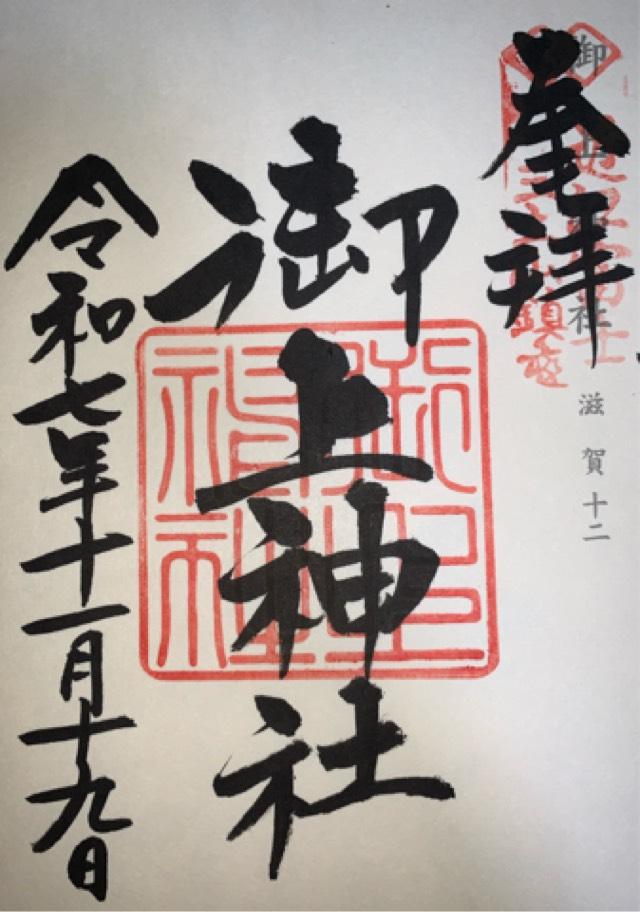 奉拝
御上神社 滋賀十二
御上神社
令和七年十一月十九日